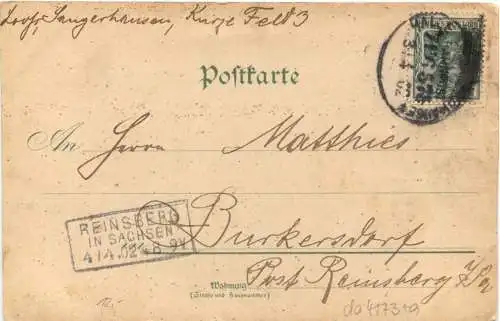 Sangerhausen, Kurze Feld 3
Postkarte
An Herrn Matthies
REINSBERG
IN SACHSEN
4/4.02 6-8 N
Burkersdorf
Post Reinsberg
Wohnung
(Straße und Hausnummer)
12,-
da4173+a